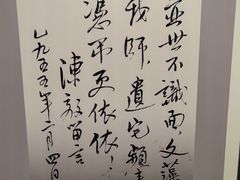 並世不識面，文藻
我師。遺宅頻
憑吊更依依。
陳毅留言
一九五五年二月四日